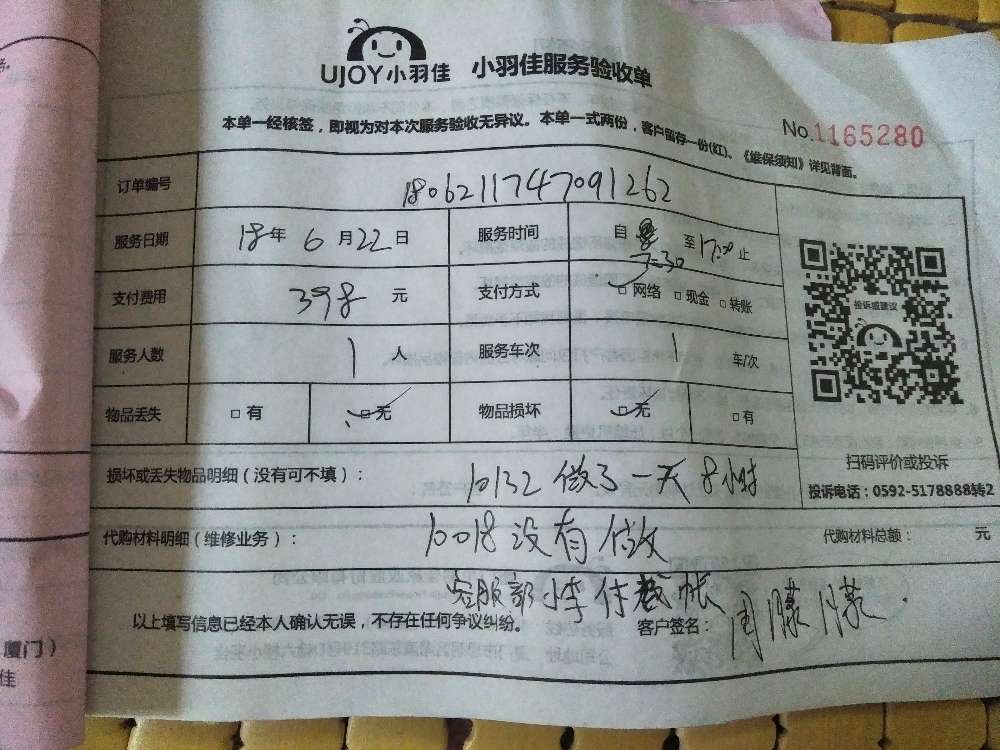 UJOY小羽佳 小羽佳服务验收单
本单一经核签，即视为对本次服务验收无异议。本单一式两份，客户留存一份(红)、《维保须知》详见背面。
No.1165280
订单编号 180621174709126 2
服务日期 18年 6月22日 服务时间 自 7:30 至17:00止
支付费用 398 元 支付方式 □网络 □现金 □转账
服务人数 1 人 服务车次 1 车/次
物品丢失 □有 □无 物品损坏 □无 □有
投诉或建议
扫码评价或投诉
投诉电话：0592-5178888转2
损坏或丢失物品明细（没有可不填）： 10132 做了一天8小时
代购材料明细（维修业务）： 10018没有做 代购材料总额： 元
客服部小李
以上填写信息已经本人确认无误，不存在任何争议纠纷。 客户签名： 周朦朦
厦门）
佳